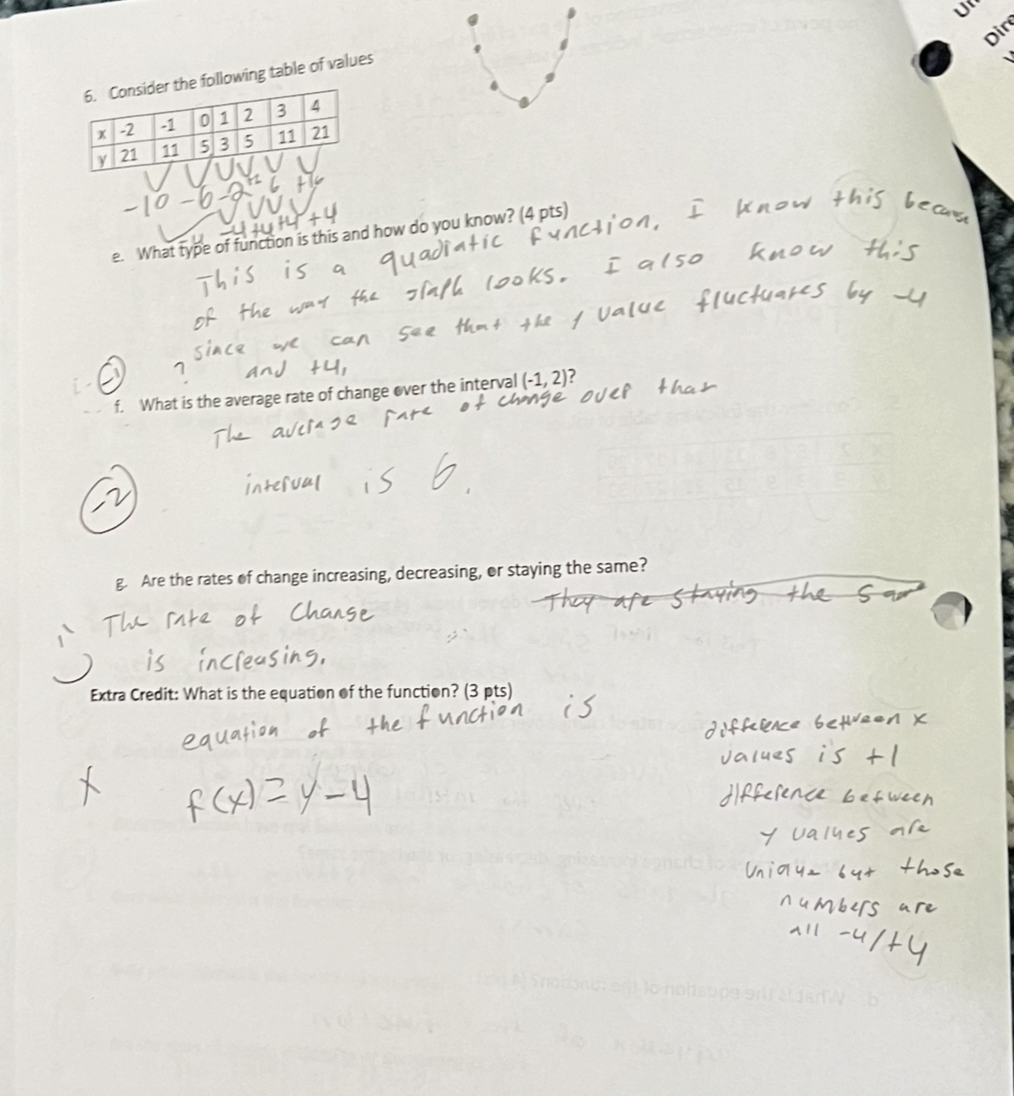 Dire
6. Consider the following table of values
x -2 -1 0 1 2 3 4
y 21 11 5 3 5 11 21
-10 -6 -2 +2 6
-4 +4 +4 +4
e. What type of function is this and how do you know? (4 pts)
This is a quadiatic function. I know this because
of the way the graph looks. I also know this
since we can see that the y value fluctuates by -4
and +4.
?
-1
f. What is the average rate of change over the interval (-1, 2)?
The average rate of change over that
interval is 6.
-2
g. Are the rates of change increasing, decreasing, or staying the same?
They are staying the same
The rate of change
is increasing.
Extra Credit: What is the equation of the function? (3 pts)
equation of the function is
f(x)=y-4
difference between x
values is +1
difference between
y values are
unique but those
numbers are
all -4/+4